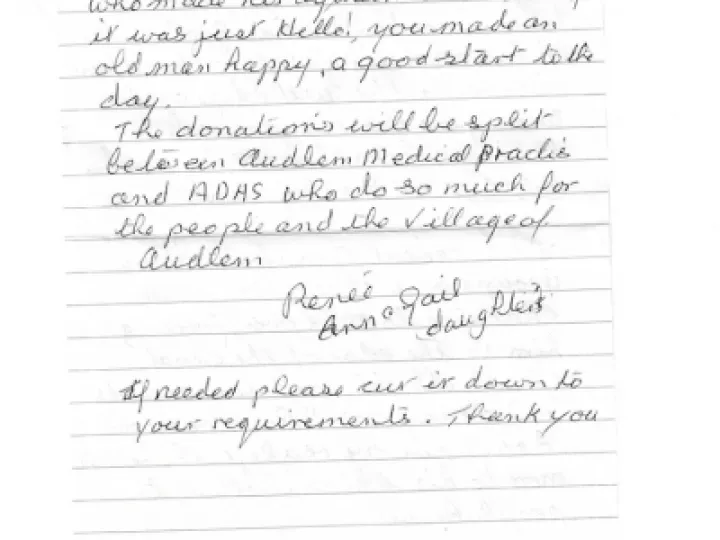 who made
it was just Hello!, you made an
old man happy, a good start to the
day.
The donations will be split
between Audlem Medical Practis
and ADAS who do so much for
the people and the Village of
Audlem
Reneé
Anne Gail
daughters
If needed please cut it down to
your requirements. Thank you